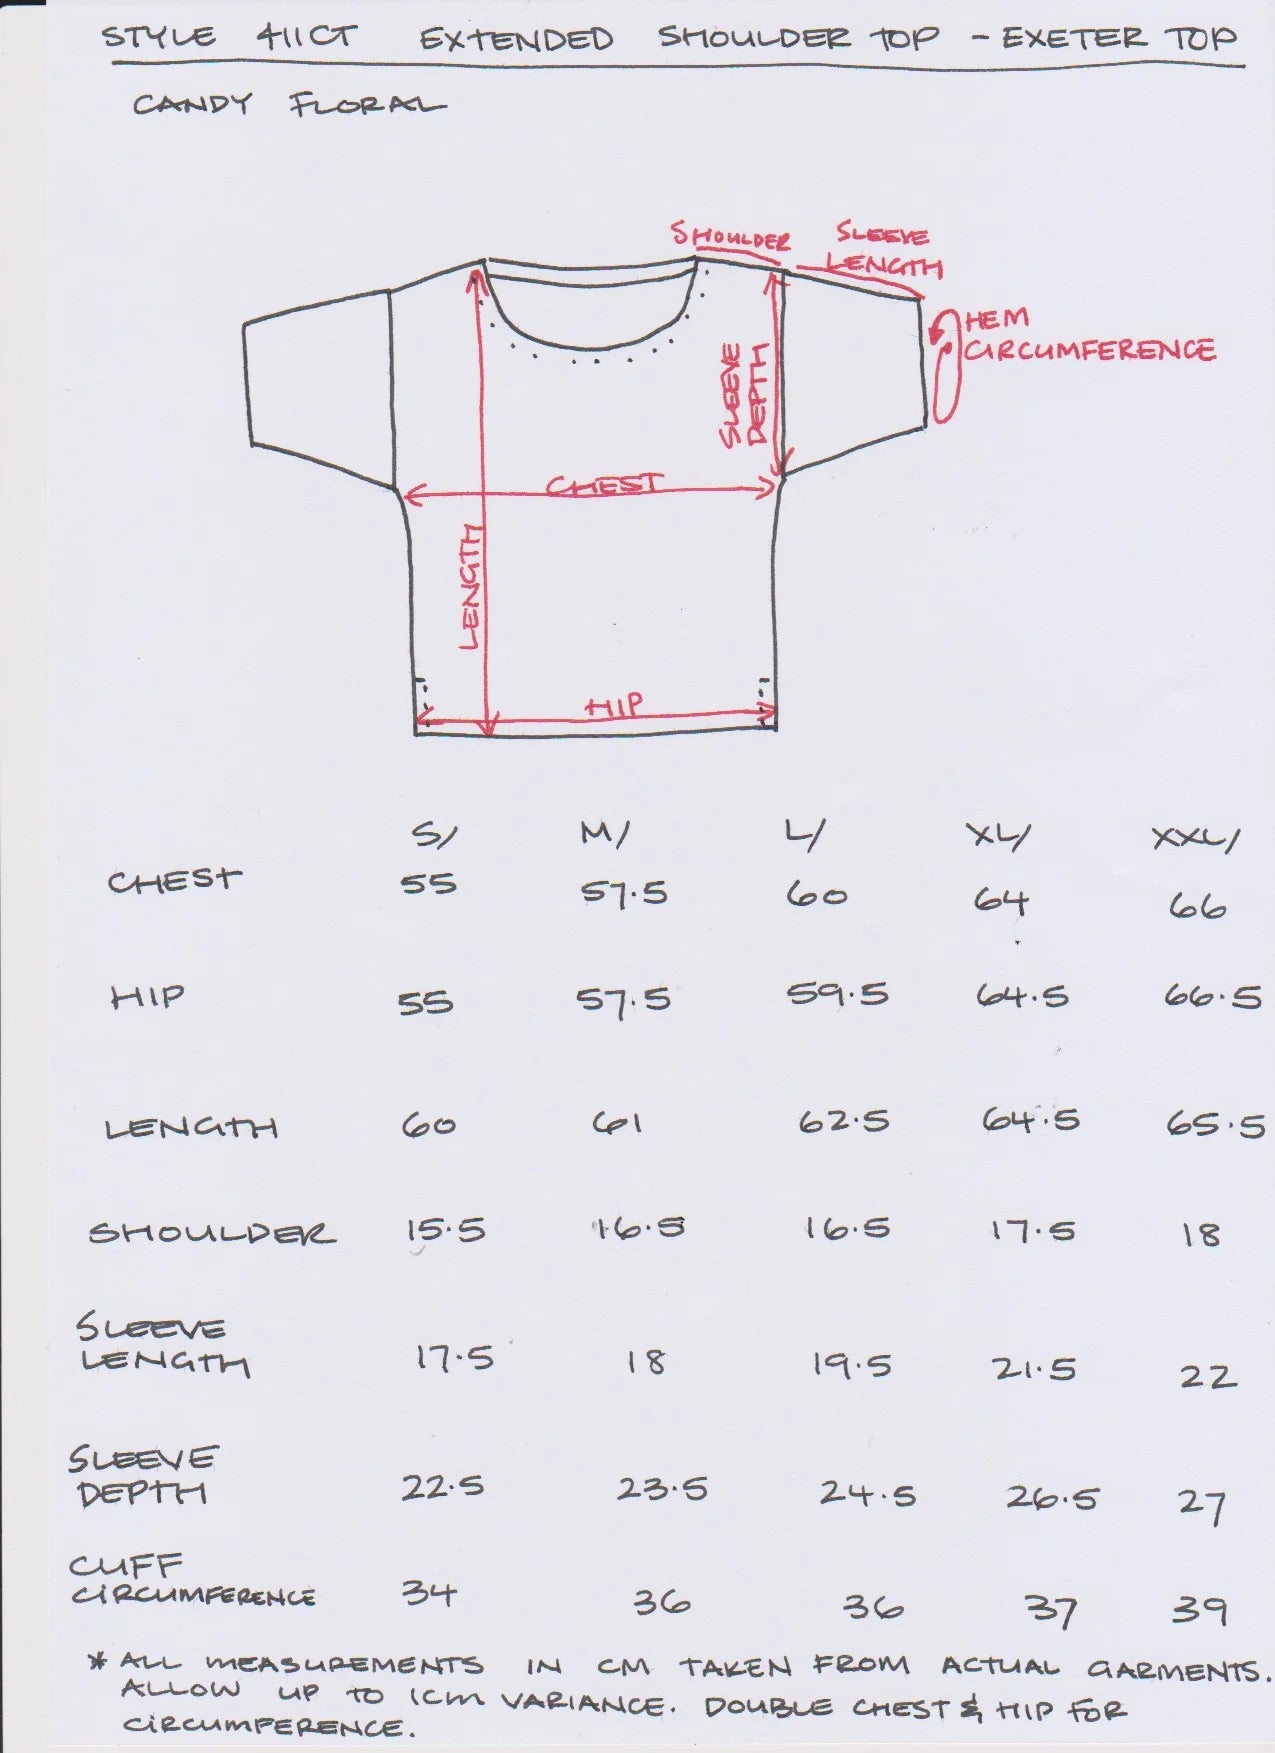 STYLE 411CT EXTENDED SHOULDER TOP - EXETER TOP
CANDY FLORAL
SHOULDER
SLEEVE
LENGTH
HEM
CIRCUMFERENCE
SLEEVE
DEPTH
CHEST
LENGTH
HIP
S/ M/ L/ XL/ XXL/
CHEST 55 57.5 60 64 66
HIP 55 57.5 59.5 64.5 66.5
LENGTH 60 61 62.5 64.5 65.5
SHOULDER 15.5 16.5 16.5 17.5 18
SLEEVE
LENGTH 17.5 18 19.5 21.5 22
SLEEVE
DEPTH 22.5 23.5 24.5 26.5 27
CUFF
CIRCUMFERENCE 34 36 36 37 39
* ALL MEASUREMENTS IN CM TAKEN FROM ACTUAL GARMENTS.
ALLOW UP TO 1CM VARIANCE. DOUBLE CHEST & HIP FOR
CIRCUMFERENCE.